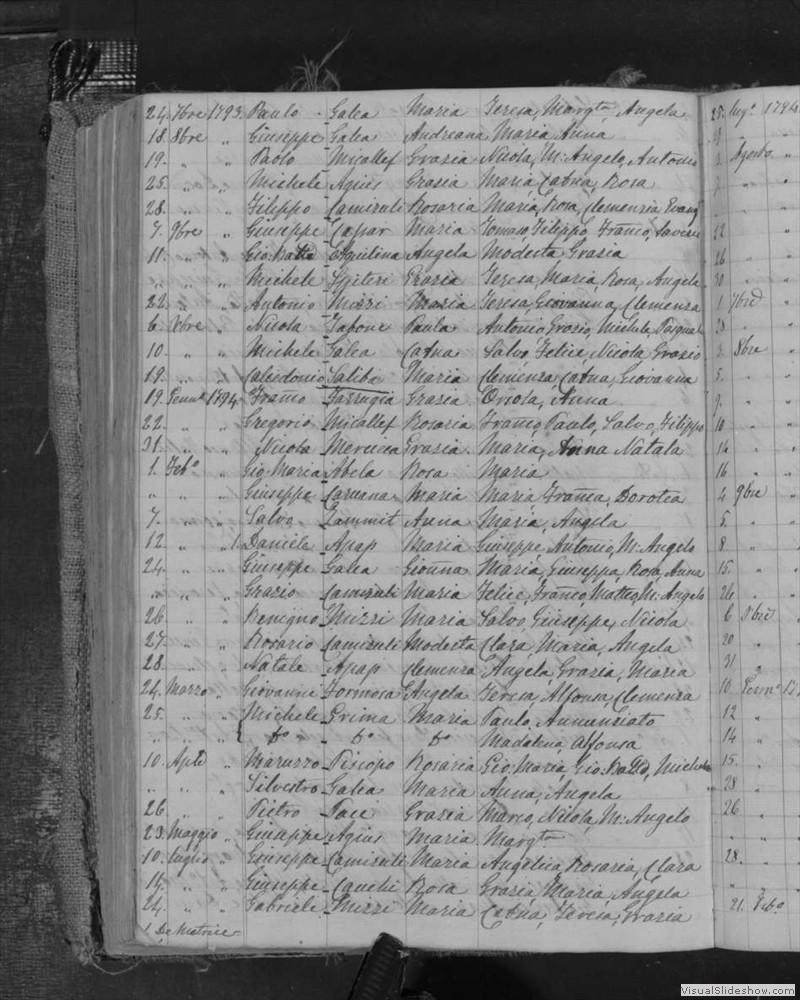 24. 7bre 1793. Paulo - Galea Maria Teresa, Margta, Angela
18. 8bre „ Giuseppe - Galea Andreana Maria Anna
19. „ „ Paolo Micallef Grazia Nicola, M: Angelo, Antonio
25. „ „ Michele - Agius Grazia Maria Catna, Rosa
28. „ „ Filippo - Camizuli Rosaria Maria, Rosa, Clemenzia
7. 9bre „ Giuseppe - Caspar Maria Tomaso, Filippo, Franco, Saverio
11. „ „ Gio: Batta Angela Modesta, Grazia
„ „ „ Michele - Spiteri Grazia Teresa, Maria, Rosa, Angela
22. „ „ Antonio - Mizzi Maria Teresa, Giovanna, Clemenza
6. Xbre „ Nicola Paula Antonio, Grazio, Michele, Pasquale
10. „ „ Michele Galea Catna Salvo, Felice, Nicola, Grazio
19. „ „ Calcedonio - Saliba Maria Clemenza, Catna, Giovanna
19. Genn. 1794. Franco - Farrugia Grazia Orsola, Anna
22. „ „ Gregorio Micallef Rosaria Franco, Paulo, Salvo, Filippo
31. „ „ Nicola - Mercieca Grazia Maria, Anna Natala
1. Febo. „ Gio: Maria - Abela Rosa Maria
„ „ „ Giuseppe - Caruana Maria Maria, Franca, Dorotea
7. „ „ Salvo - Zammit Anna Maria, Angela
12. „ „ 1. Daniele - Apap Maria Giuseppe, Antonio, M: Angelo
24. „ „ Giuseppe Galea Gionna Maria, Giuseppa, Rosa, Anna
„ „ „ Grazio - Camizuli Maria Felice, Franco, Matteo, M: Angelo
26. „ „ Benigno - Mizzi Maria Salvo, Giuseppe, Nicola
27. „ „ Rosario - Camizuli Modesta Clara, Maria, Angela
28. „ „ Natale - Apap Clemenza Angela, Grazia, Maria
24. Marzo „ Giovanni - Formosa Angela Teresa, Alfonsa, Clemenza
25. „ „ Michele - Grima Maria Paulo, Annunziato
„ „ „ { do - do do Madalena, Alfonsa
10. Aple „ Maruzzo - Piscopo Rosaria Gio: Maria, Gio: Batta, Michele
„ „ „ Silvestro - Galea Maria Anna, Angela
26. „ „ Pietro - Pace Grazia Marco, Nicola, M: Angelo
23. Maggio „ Giuseppe - Agius Maria Margta
10. Luglio „ Giuseppe - Camizuli Maria Angelica, Rosaria, Clara
14. „ „ Giuseppe - Cauchi Rosa Grazia, Maria, Angela
24. „ „ Gabriele - Mizzi Maria Catna, Teresa, Grazia
1. De Matrice
25. Lugo. 1794
3. Agosto „
22 „ „
26 „ „
30 „ „
1 7bre „
28 „ „
3. 8bre „
5. „ „
9. „ „
10 „ „
14 „ „
16 „ „
4 9bre „
5. „ „
8 „ „
15 „ „
26 „ „
6 Xbre „
20 „
31 „
10 Genno. 17
12 „
14 „
15. „
28 „
26 „
„ „
28. „
„ „
21. Febo.
VisualSlideshow.com